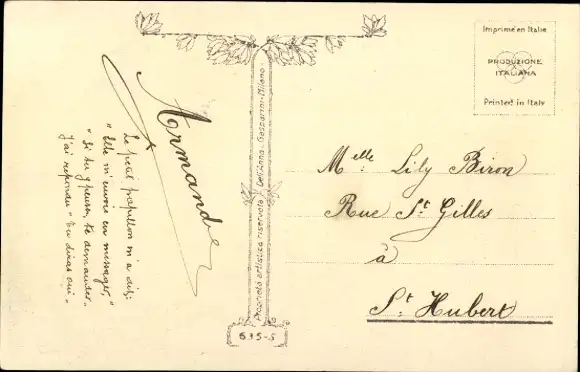 Le petit papillon m'a dit:
"Elle m'envoie en messager,
"Si tu y penses, te demander."
J'ai répondu "Tu diras oui."
Armande
Proprietà artistica riservata - Dell'Anna - Gasparini - Milano.
635-5
Imprimé en Italie
PRODUZIONE
ITALIANA
Printed in Italy
Melle Lily Biron
Rue St Gilles
à
St Hubert